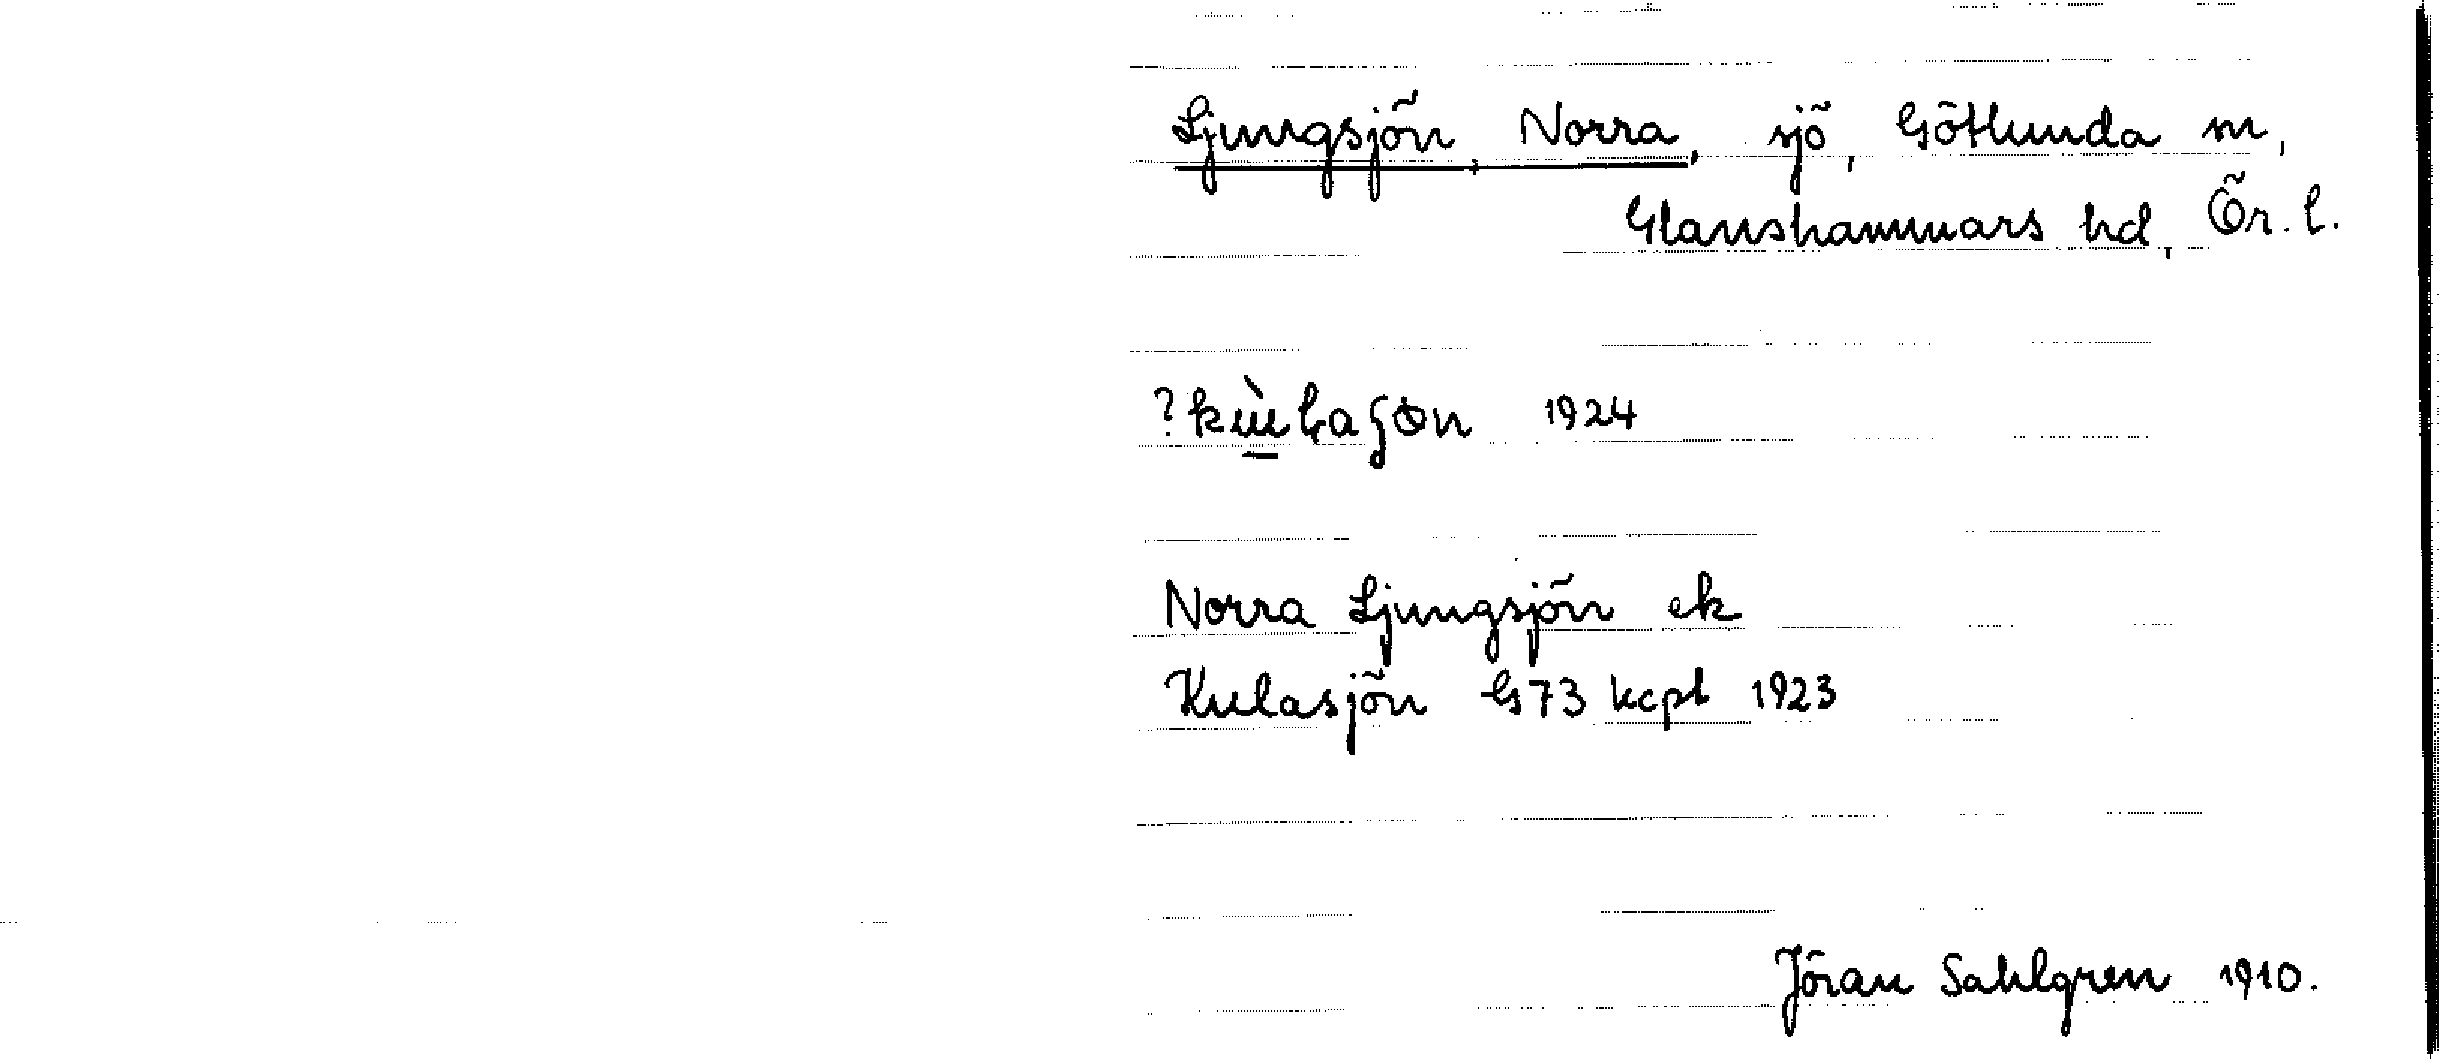 Ljungsjön, Norra, sjö, Götlunda sn,
Glanshammars hd, Ör. l.
1924
Norra Ljungsjön ek
Kulasjön G73 kcpt 1923
Jöran Sahlgren 1910.